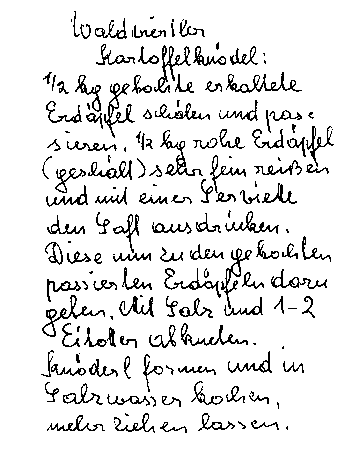 Waldviertler
Kartoffelknödel:
1/2 kg gekochte erkaltete
Erdäpfel schälen und pas-
sieren. 1/2 kg rohe Erdäpfel
(geschält) sehr fein reißen
und mit einer Serviette
den Saft ausdrücken.
Diese nun zu den gekochten
passierten Erdäpfeln dazu
geben. Mit Salz und 1-2
Eidotter abkneten.
Knöderl formen und in
Salzwasser kochen,
mehr ziehen lassen.